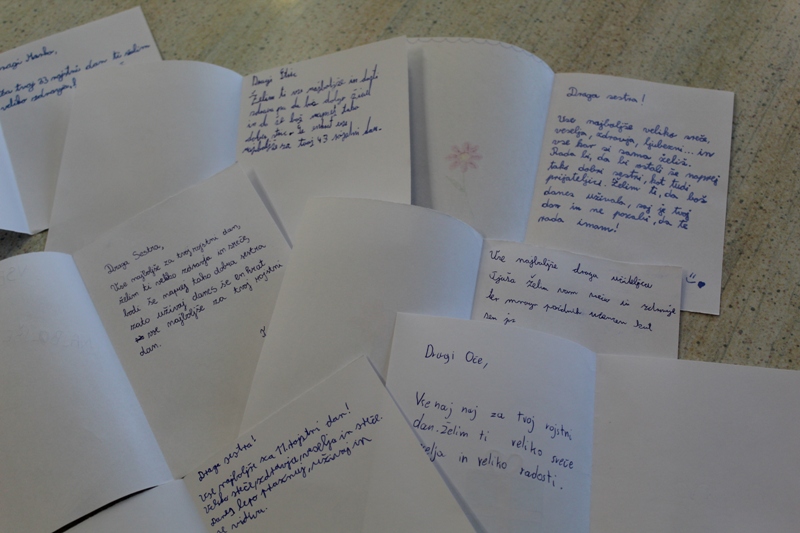 Marko,
za tvoj 23 rojstni dan ti želim
veliko zdravja!
Dragi
Želim ti vse najboljše in dosti
zdravja da boš dolgo živel
in da če boš naprej tako
dober
najboljše za tvoj 43 rojstni dan.
Draga sestra!
Vse najboljše veliko sreče,
veselja, zdravja, ljubezni... in
vse kar si sama želiš.
Rada bi, da bi ostali še naprej
tako dobri sestri, kot tudi
prijateljici. Želim ti, da boš
danes uživala, saj je tvoj
dan in ne pozabi, da te
rada imam!
Draga Sestra,
Vse najboljše za tvoj rojstni dan,
želim ti veliko zdravja in sreče,
bodi še naprej tako dobra sestra
zato uživaj danes še en krat
vse najboljše za tvoj rojstni
dan.
Vse najboljše draga učiteljica
Tjaša želim vam sreče in zdravja
ter mnogo pridnih učencem kot
sem jz
Dragi Oče,
Vse naj naj za tvoj rojstni
dan. želim ti veliko sreče
veselja in veliko radosti.
Draga sestra!
Vse najboljše za 11. rojstni dan!
Veliko sreče, zdravja, veselja in sreče.
Danes lepo praznuj, uživaj in